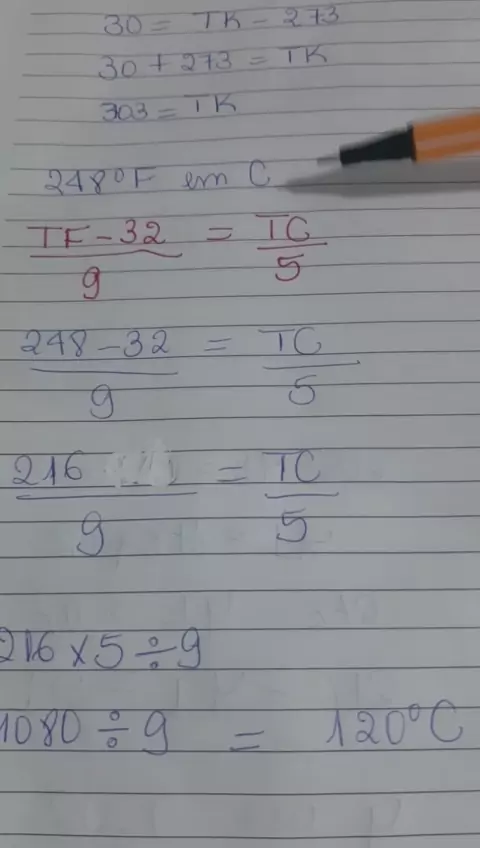 30 = TK - 273
30 + 273 = TK
303 = TK
248°F em C
TF - 32 = TC
9 5
248 - 32 = TC
9 5
216 = TC
9 5
216 x 5 ÷ 9
1080 ÷ 9 = 120°C